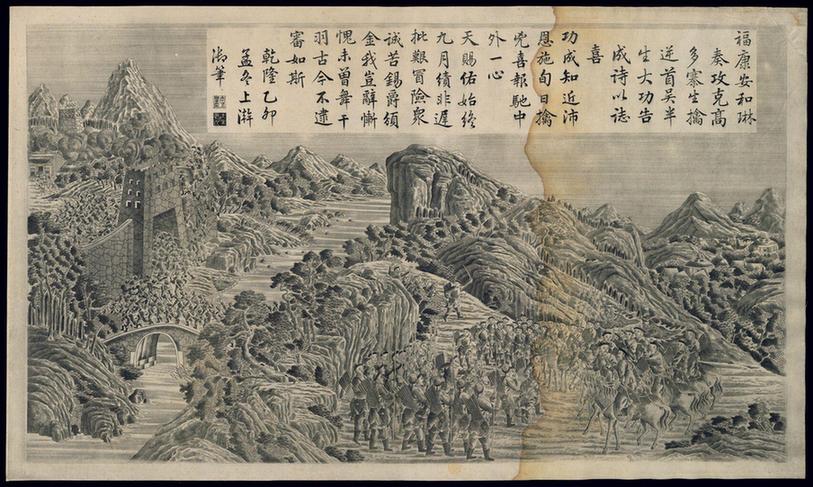 福康安和琳
奏攻克高
多寨生擒
逆首吴半
生大功告
成詩以誌
喜
功成知近沛
恩施旬日擒
兇喜報馳中
外一心
天賜佑始終
九月績非遲
批艱冒險衆
誠苦錫爵頒
金我豈辭慚
愧未曾舞干
羽古今不違
審如斯
乾隆乙卯
孟冬上澣
御筆